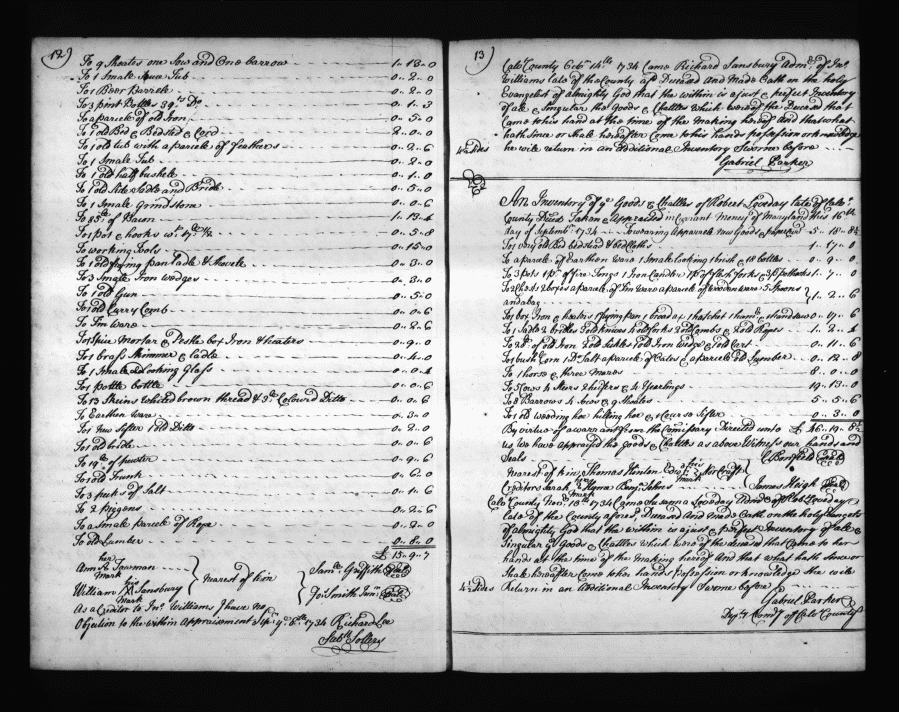 12)
To 9 Shoates one Sow and One barrow 1..13..0
To 1 Smale Tub 0..2..0
To 1 Beer Barrele 0..2..0
To 3 pint Bottles 3 q.ts D.o 0..1..3
To a parcele of old Iron 0..5..0
To 1 old Bed & Bedsted & Cord 2..0..0
To 1 old tub with a parcele of feathers 0..2..6
To 1 Smale Tub 0..2..0
To 1 old half bushele 0..1..0
To 1 old Side Sadle and Bridle 0..5..0
To 1 Smale Grindstone 0..0..6
To 85.lb of Bacon 1..13..4
To 1 pot & hooks w.t 0..5..8
To working Tools 0..15..0
To 1 old frying pan Ladle & Shovele 0..3..0
To 3 Smale Iron wedges 0..3..0
To 1 old Gun 0..5..0
To 1 old Curry Comb 0..0..6
To Tin Ware 0..2..6
To 1 Spice Mortar & Pestle box Iron & heaters 0..9..0
To 1 brass Skimmer & Ladle 0..4..0
To 1 Smale Looking Glass 0..0..4
To 1 pottle bottle 0..0..6
To 13 Skeins whited brown thread & 3 D.o Coloured Ditto 0..0..6
To Earthen Ware 0..3..0
To 1 new Sifter 1 old Ditto 0..2..0
To 1 old bridle 0..0..6
To 19.lb of pewter 0..9..6
To 1 old Trunk 0..6..0
To 3 pecks of Salt 0..1..6
To 2 piggens 0..2..6
To a Smale parcele of Rope 0..2..0
To old Lumber 0..8..0
£15..9..7
her
Ann A Tawman
mark
his
William X Sansbury
mark
nearest of kin
Sam.l Griffith Seal
Jo: Smith Jun.r Seal
As a Creditor to Jn.o Williams I have no
Objection to the within Appraisement Sep.r y.e 6.th 1734 Richard Lee
Sab.tt Sollers
13)
Calv.t County Octo.r 14.th 1734 Came Richard Sansbury Adm.r of Jn.o
Williams late of the County af.d Deceased And Made Oath on the holy
Evangelist of almighty God that the within is a just & perfect Inventory
of ale & Singular the Goods & Chattles which were of the Deceased that
Came to his hand at the time of the Making hereof And that what
hath since or Shale hereafter Come to his hands possession or knowledge
he wile return in an additional Inventory Sworne before
4½ Sides
Gabriel Parker
An Inventory of y.e Goods & Chattles of Robert Loveday late of Calv.t
County Dece.d Taken & Appraised in Currant Money of Maryland this 16.th
day of Septemb.r 1734 wearing Apparrele new Goods & 5..18..8½
To 1 very old Bed bedstead & bed Cloths 1..17..0
To a parcele of Earthen Ware 1 Smale Looking & 18 bottles 0..9..0
To 3 pots 1 p.r of fire Tongs 1 Iron Candle 1 p.r of flesh forks & 3 pothooks 1..7..0
To 2 Chests 2 boxes a parcele of Tin Ware a parcele of wooden ware 5 Spoons
and a bag 1..2..6
To 1 box Iron & heaters 1 frying pan 1 broad ax 1 hatchet 1 hamer & 0..17..6
To 1 Sadle 2 bridles 1 old knives & old forks 2 old Combs & 2 old Hoges 1..2..4
To of old Iron 2 old sickles 1 old Iron & 1 old Cart 0..11..6
To 1 bush.l Corn 1 D.o Salt a parcele of Oates a parcele old Lumber 0..12..8
To 1 horse & three Mares 8..0..0
To 5 Cows 4 Steers 2 heifers & 4 Yearlings 19..13..0
To 8 Barrows 4 Sows & 9 Shoates 5..5..6
To 1 old weeding hoe 1 hilling hoe & 1 Course Sifter 0..3..0
By virtue of a warrant from the Comissary Directed unto £46..19..8½
us We have appraized the goods & Chattles as above Witness our hands and
Seals
Barfield Seal
Nearest of kin Thomas Hinton
his
mark
Creditors Sarah Home Benj.n Johns
her
mark
James Heigh Seal
Calv.t County Nov.r 13.th 1734 Came Susana Loveday Adm.x of Rob.t Loveday
late of the County afores.d Deceased And Made Oath on the holy Evangels
of almighty God that the within is a just & perfect Inventory of ale &
Singular y.e Goods & Chattles which were of the deceased that Came to her
hands at the time of the Making hereof And that what hath Since or
Shale hereafter Come to her hands Possession or knowledge She wile
Return in an Additional Inventory Sworne before
4½ Sides
Gabriel Parker
Dep.ty Comd.y of Calv.t County